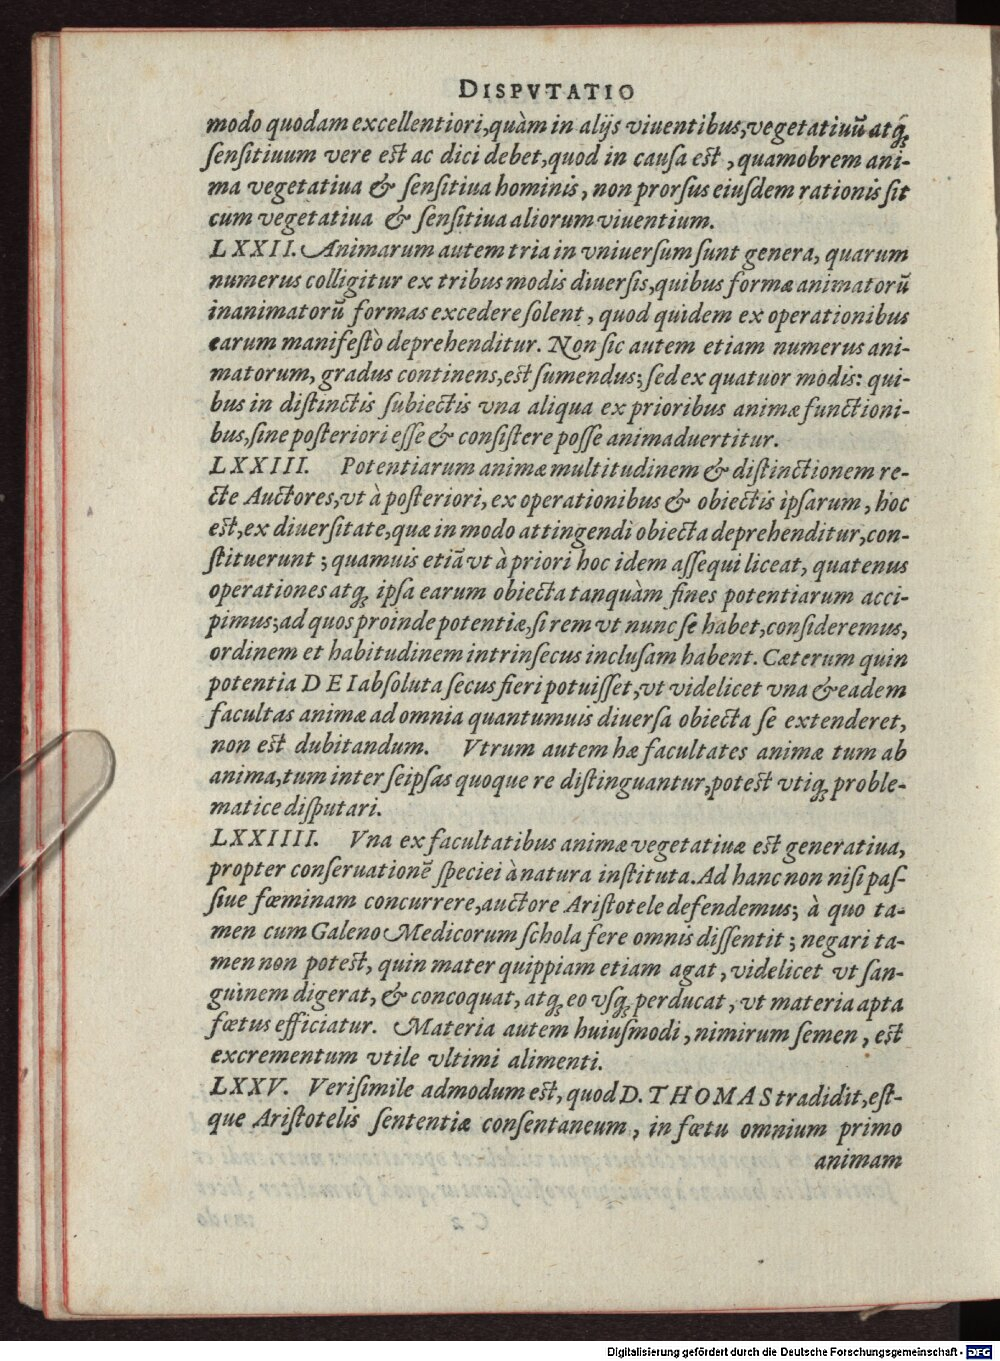 DISPVTATIO
modo quodam excellentiori, quàm in alijs viuentibus, vegetatiuū atq́ꝫ
ſenſitiuum vere eſt ac dici debet, quod in cauſa eſt, quamobrem ani-
ma vegetatiua & ſenſitiua hominis, non prorſus eiuſdem rationis ſit
cum vegetatiua & ſenſitiua aliorum viuentium.
LXXII. Animarum autem tria in vniuerſum ſunt genera, quarum
numerus colligitur ex tribus modis diuerſis, quibus formæ animatorū
inanimatorū formas excedere ſolent, quod quidem ex operationibus
earum manifeſtò deprehenditur. Non ſic autem etiam numerus ani-
matorum, gradus continens, eſt ſumendus; ſed ex quatuor modis: qui-
bus in diſtinctis ſubiectis vna aliqua ex prioribus animæ functioni-
bus, ſine poſteriori eſſe & conſiſtere poſſe animaduertitur.
LXXIII. Potentiarum animæ multitudinem & diſtinctionem re-
cte Auctores, vt à poſteriori, ex operationibus & obiectis ipſarum, hoc
eſt, ex diuerſitate, quæ in modo attingendi obiecta deprehenditur, con-
ſtituerunt; quamuis etiā vt à priori hoc idem aſſequi liceat, quatenus
operationes atqꝫ ipſa earum obiecta tanquàm fines potentiarum acci-
pimus; ad quos proinde potentiæ, ſi rem vt nunc ſe habet, conſideremus,
ordinem et habitudinem intrinſecus incluſam habent. Cæterum quin
potentia DEI abſoluta ſecus fieri potuiſſet, vt videlicet vna & eadem
facultas animæ ad omnia quantumuis diuerſa obiecta ſe extenderet,
non eſt dubitandum. Vtrum autem hæ facultates animæ tum ab
anima, tum inter ſeipſas quoque re diſtinguantur, poteſt vtiqꝫ proble-
matice diſputari.
LXXIIII. Vna ex facultatibus animæ vegetatiuæ eſt generatiua,
propter conſeruationē ſpeciei à natura inſtituta. Ad hanc non niſi paſ-
ſiue fœminam concurrere, auctore Ariſtotele defendemus; à quo ta-
men cum Galeno Medicorum ſchola fere omnis diſſentit; negari ta-
men non poteſt, quin mater quippiam etiam agat, videlicet vt ſan-
guinem digerat, & concoquat, atqꝫ eo vſqꝫ perducat, vt materia apta
fœtus efficiatur. Materia autem huiuſmodi, nimirum ſemen, eſt
excrementum vtile vltimi alimenti.
LXXV. Veriſimile admodum eſt, quod D. THOMAS tradidit, eſt-
que Ariſtotelis ſententiæ conſentaneum, in fœtu omnium primo
animam
Digitalisierung gefördert durch die Deutsche Forschungsgemeinschaft - DFG